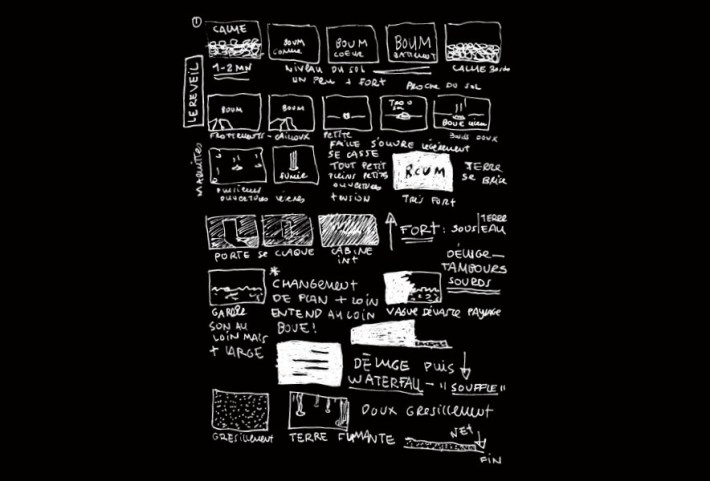 ①
LE REVEIL
CALME
BOUM
BOUM
COEUR
BOUM
BATIMENT
1-2 MN
NIVEAU DU SOL
UN PEU + FORT
PROCHE DU SOL
CALME
BOUM
BOUM
TROU
BOUE
FROTTEMENTS - CAILLOUX
PETITE
FAILLE S'OUVRE LÉGÈREMENT
SE CASSE
TOUT PETIT
PLEINS PETITS
OUVERTURES
TENSION
DOUX
MARMITES
FUMÉE
PLUSIEURS
OUVERTURES
BOUM
TRÈS FORT
TERRE
SE BRISE
PORTE SE CLAQUE
CABINE
INT
FORT : SOUS
TERRE
EAU
DÉLUGE -
TAMBOURS
SOURDS
SON AU
LOIN MAIS
+ LARGE
* CHANGEMENT
DE PLAN + LOIN
ENTEND AU LOIN
BOUE !
VAGUE DÉVASTE PAYSAGE
DÉLUGE PUIS
WATERFALL - "SOUFFLE"
GRESILLEMENT
TERRE FUMANTE
DOUX GRESILLEMENT
NET
FIN